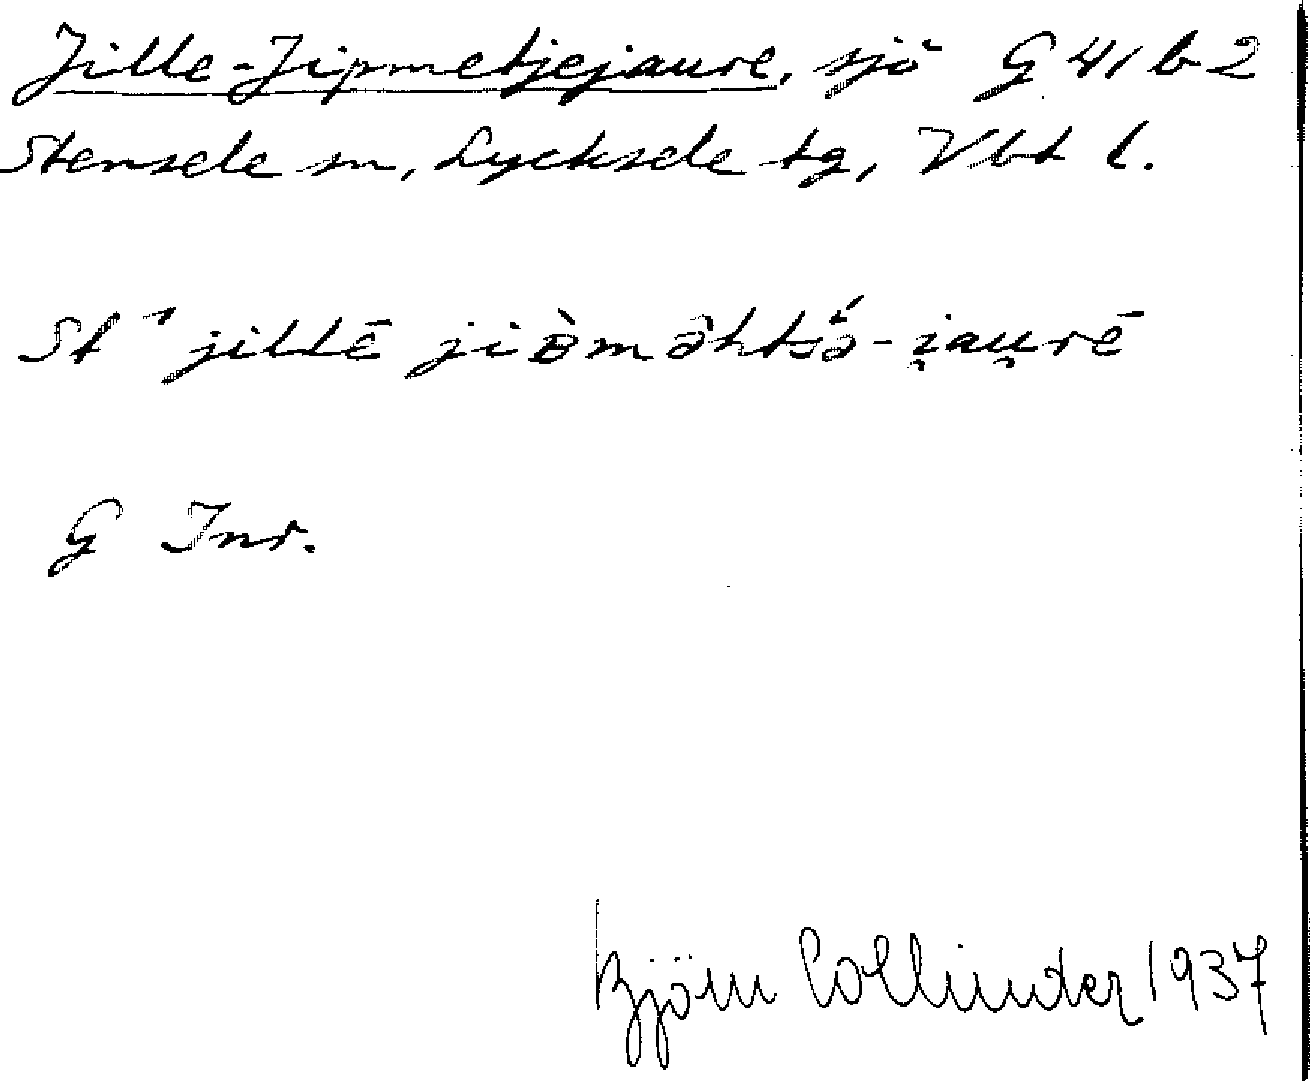 Jille-Jipmetjejaure, sjö G 41 b 2
Stensele sn, Lycksele tg, Vbt l.
St ˋjillē jiʙ̀məhtsə́-i̯au̯rē
G Inr.
Björn Collinder 1937